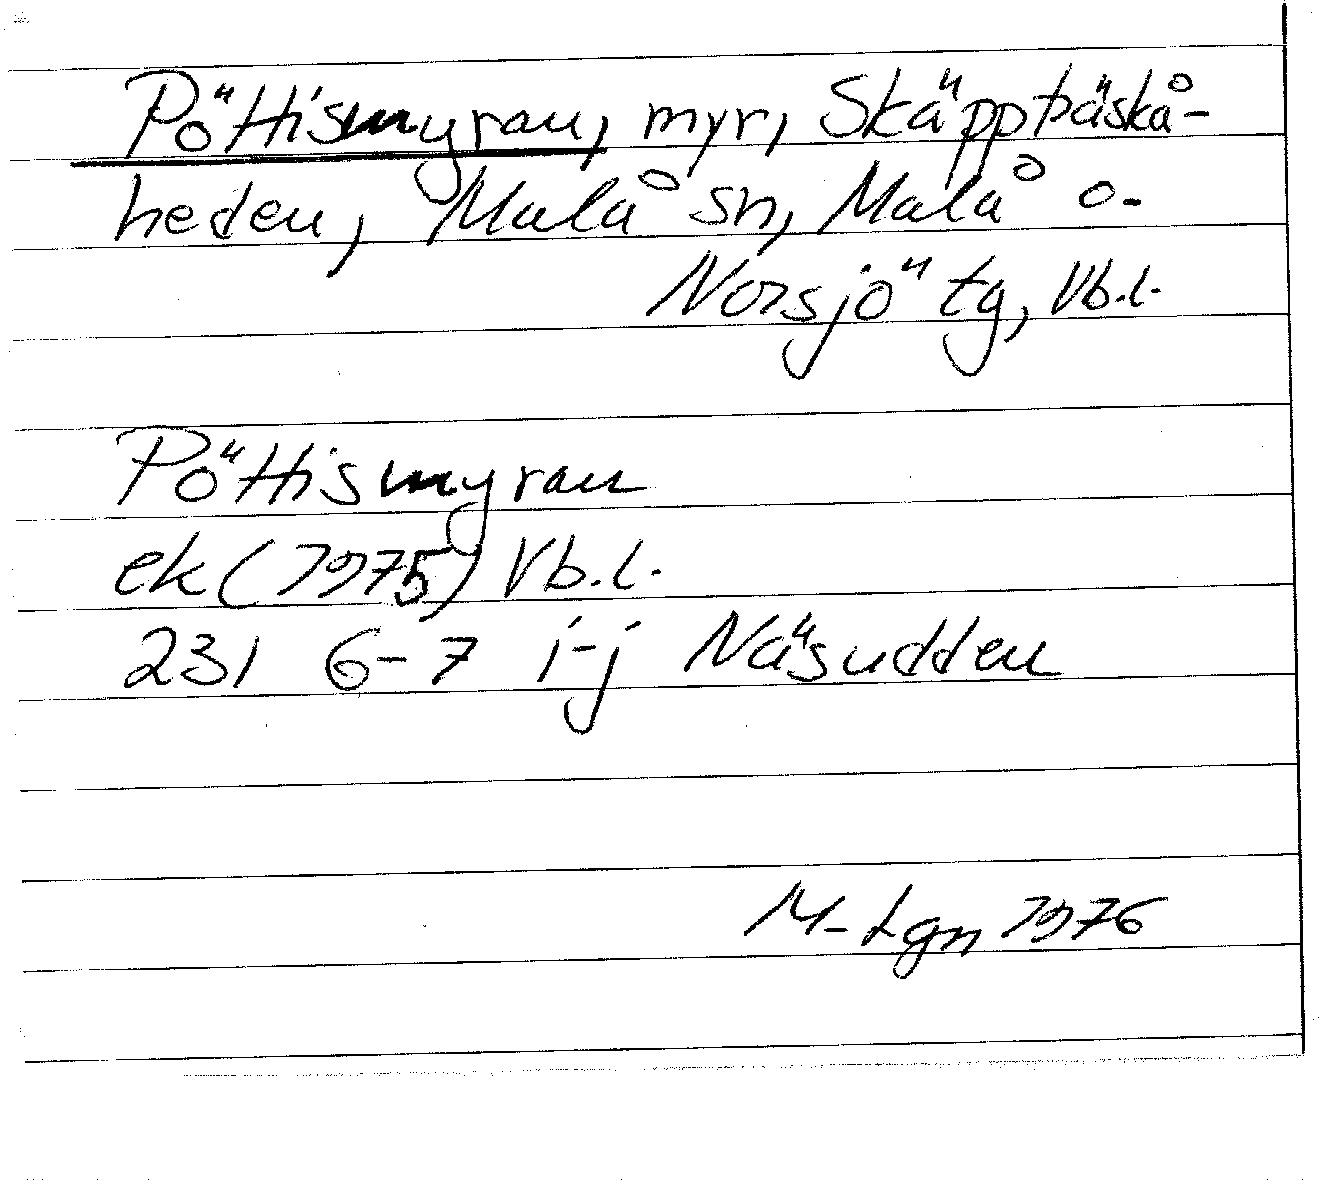 Pöttismyran, myr, Skäppträskå-
heden, Malå sn, Malå o.
Norsjö tg, Vb.l.
Pöttismyran
ek (1975) Vb.l.
231 6-7 i-j Näsudden
M-Lgn 1976